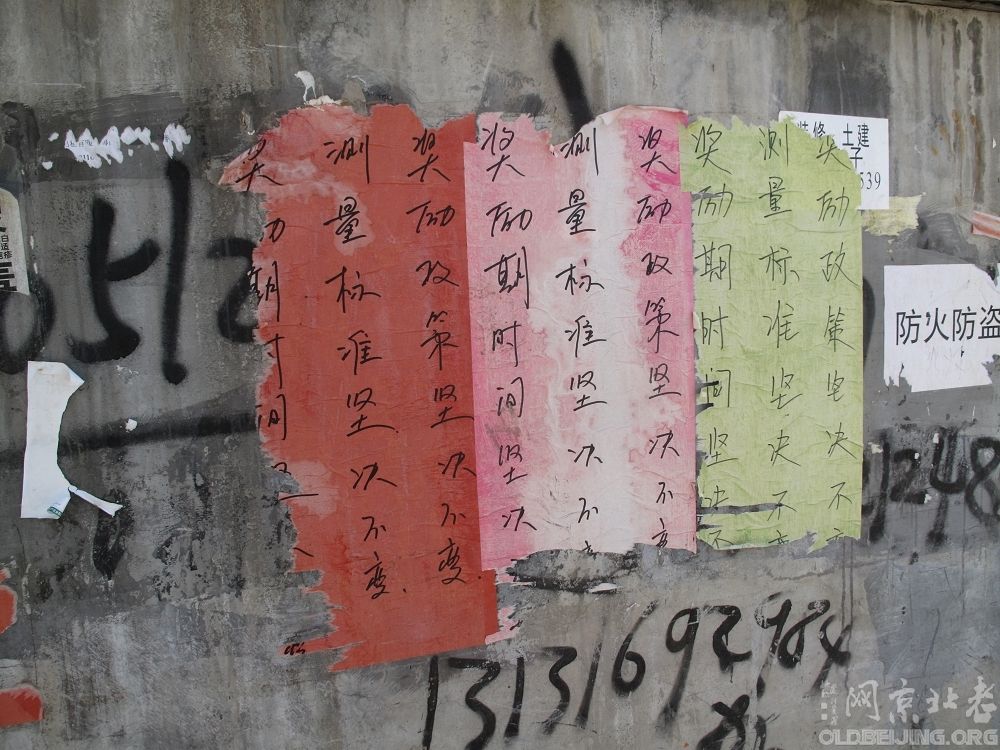 奖励政策坚决不变
测量标准坚决不
奖励期时间坚决不
奖励政策坚决不变
测量标准坚决不
奖励期时间坚决
奖励政策坚决不变.
测量标准坚决不变.
期
间
装修 土建
539
防火防盗
0512
1248
13131692984
老北京网
OLDBEIJING.ORG